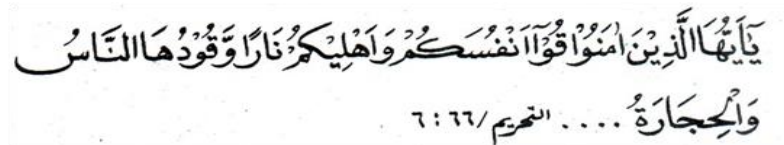 يٰٓاَيُّهَا الَّذِيْنَ اٰمَنُوْا قُوْٓا اَنْفُسَكُمْ وَاَهْلِيْكُمْ نَارًا وَّقُوْدُهَا النَّاسُ
وَالْحِجَارَةُ .... التحريم/٦٦ : ٦